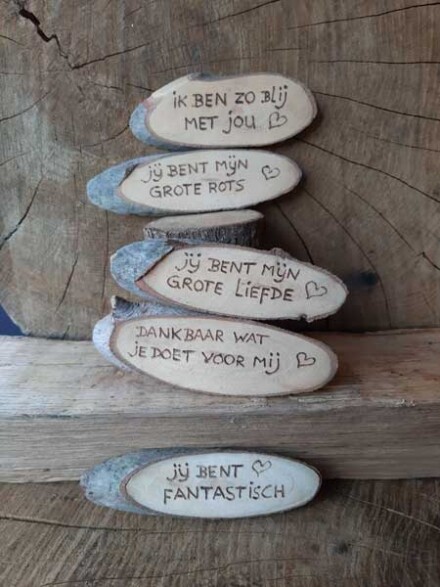 iK BEN ZO BLij
MET jOU ♡
jij BENT Mijn
GROTE ROTS ♡
jij BENT Mijn
GROTE LiEFDE ♡
DANKBAAR WAT
jE DOET VOOR Mij ♡
jij BENT ♡
FANTASTiSCH